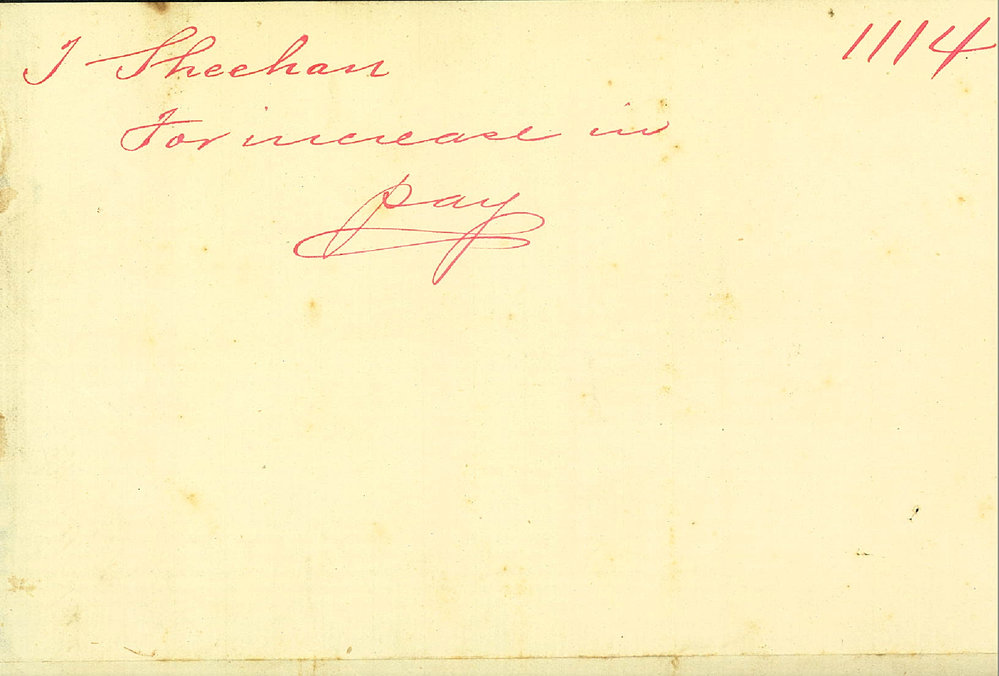 J Sheehan 1114
For increase in
pay